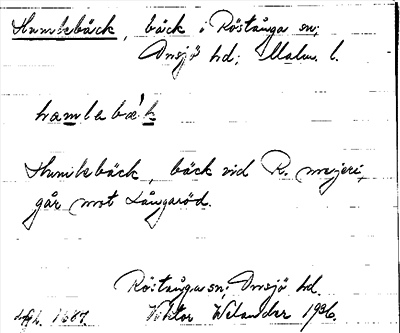 Humlebäck, bäck i Röstånga sn;
Onsjö hd; Malm. l.
hamlabæ'k
Humlebäck, bäck vid R. mejeri,
går mot Långaröd.
Röstånga sn; Onsjö hd.
1687. Viktor Welander 1936.